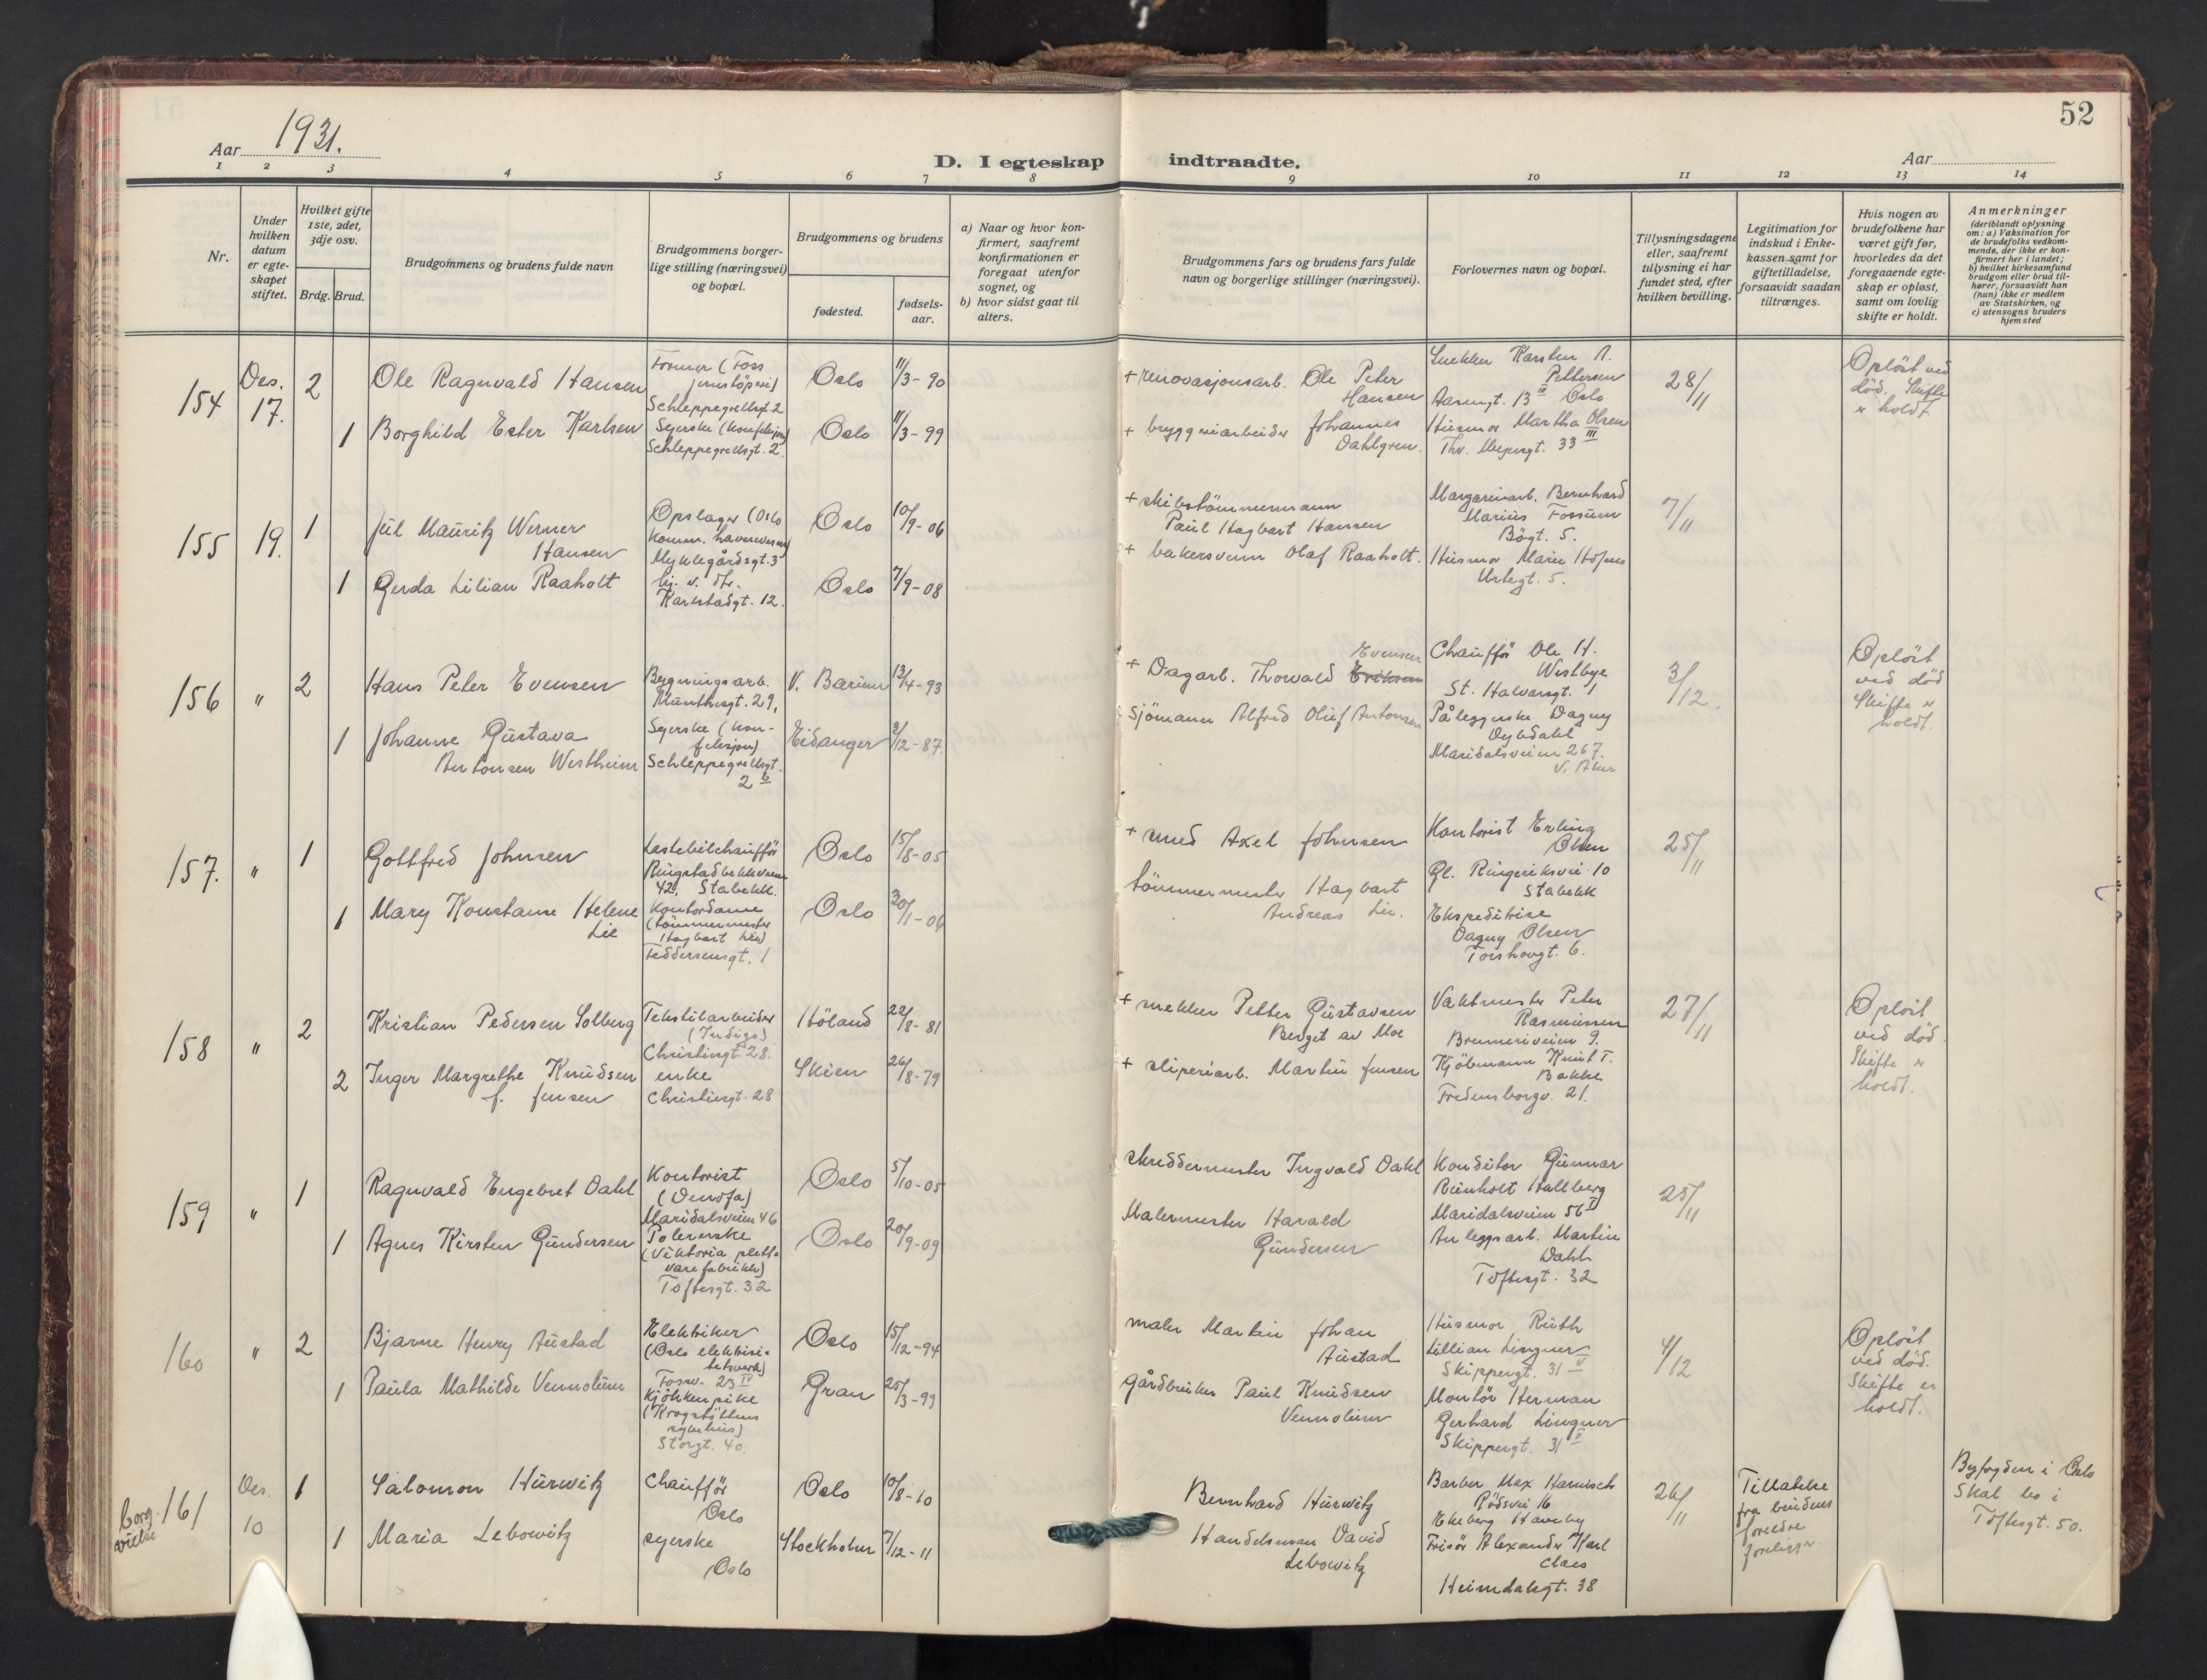 52
Aar 1931.
D. I egteskap indtraadte.
Aar
1 2 3 4 5 6 7 8 9 10 11 12 13 14
Nr.
Under
hvilken
datum
er egte-
skapet
stiftet.
Hvilket gifte
1ste, 2det,
3dje osv.
Brdg. Brud.
Brudgommens og brudens fulde navn
Brudgommens borger-
lige stilling (næringsvei)
og bopæl.
Brudgommens og brudens
fødested.
fødsels-
aar.
a) Naar og hvor kon-
firmert, saafremt
konfirmationen er
foregaat utenfor
sognet, og
b) hvor sidst gaat til
alters.
Brudgommens fars og brudens fars fulde
navn og borgerlige stillinger (næringsvei).
Forlovernes navn og bopæl.
Tillysningsdagene
eller, saafremt
tillysning ei har
fundet sted, efter
hvilken bevilling.
Legitimation for
indskud i Enke-
kassen samt for
giftetilladelse,
forsaavidt saadan
tiltrænges.
Hvis nogen av
brudefolkene har
været gift før,
hvorledes da det
foregaaende egte-
skap er opløst,
samt om lovlig
skifte er holdt.
Anmerkninger
(deriblandt oplysning
om: a) Vaksination for
de brudefolks vedkom-
mende, der ikke er kon-
firmert her i landet;
b) hvilket kirkesamfund
brudgom eller brud til-
hører, forsaavidt han
(hun) ikke er medlem
av Statskirken, og
c) utensogns bruders
hjemsted
154
Des.
17.
2
Ole Ragnvald Hansen
Former (Foss
jernstöperi)
Schleppegrellsgt. 2
Oslo
11/3-90
+ renovasjonsarb. Ole Peter
Hansen
Snekker Karsten A.
Pettersen
13 III Oslo
28/11
Opløst ved
död. Skifte
er holdt.
1
Borghild Ester Karlsen
Syerske (konfeksjon)
Schleppegrellsgt. 2.
Oslo
11/3-99
+ bryggeriarbeider Johannes
Dahlgren.
Husmor Martha Olsen
Thv. Meyersgt. 33 III
155
19.
1
Jul Mauritz Werner
Hansen
Opslager (Oslo
komm. havnevesen)
Myklegårdsgt. 3
Oslo
10/9-06
+ skibstömmermann
Paul Hagbart Hansen
Margarinarb. Bernhard
Marius Fossum
Bögt. 5.
7/11
1
Gerda Lilian Raaholt
hj. v. dtr.
Karlstadgt. 12.
Oslo
7/9-08
+ bakersvenn Olaf Raaholt.
Husmor Marie
Urtegt. 5.
156
"
2
Hans Peter Evensen
Bygningsarb.
Munthesgt. 29,
V. Bærum
13/4-93
Evensen
+ Dagarb. Thorvald Eriksen
Chauffør Ole H.
Westbye
St. Halvarsgt. 1
3/12.
Opløst
ved död
Skifte er
holdt.
1
Johanne Gustava
Antonsen Westheim
Syerske (kon-
feksjon)
Schleppegrellsgt.
2 b
Eidanger
2/12-87.
Sjömann Alfred Oluf Antonsen
Påleggerske Dagny
Dybdahl
Maridalsveien 267.
V. Aker
157.
"
1
Gottfred Johnsen
Lastebilchauffør
Ringstadbekkveien
42. Stabekk.
Oslo
15/8-05
+ smed Axel Johnsen
Kontorist Erling
Olsen
Gl. Ringeriksvei 10
Stabekk
25/11
1
Mary Konstanse Helene
Lie
Kontordame
(tömmermester
Hagbart Lie)
Feddersensgt. 1
Oslo
30/1-06
tömmermester Hagbart
Andreas Lie.
Ekspeditrise
Dagny Olsen
Torshovgt. 6.
158
"
2
Kristian Pedersen Solberg
Tekstilarbeider
(Indigo)
Christiesgt. 28.
Höland
22/8-81
+ snekker Petter Gustavsen
Berget av Moe
Vaktmester Peter
Rasmussen
Brenneriveien 9.
27/11
Opløst
ved död.
Skifte er
holdt.
2
Inger Margrethe Knudsen
f. Jensen
enke
Christiesgt. 28
Skien
26/8-79
+ sliperiarb. Martin Jensen
Kjöbmann Knut T.
Bakke
Fredensborgv. 21.
159
"
1
Ragnvald Engebret Dahl
Kontorist
(Denofa)
Maridalsveien 46
Oslo
5/10-05
skreddermester Ingvald Dahl
Konditor Gunnar
Reinholt Hallberg
Maridalsveien 56 I
25/11
1
Agnes Kirsten Gundersen
Polererske
(Viktoria plett-
varefabrikk)
Toftesgt. 32
Oslo
20/9-09
Malermester Harald
Gundersen
Anleggsarb. Martin
Dahl
Toftesgt. 32
160
"
2
Bjarne Henry Austad
Elektriker
(Oslo elektrisi-
tetsverk)
Fossv. 23 IV
Oslo
15/12-94
maler Martin Johan
Austad
Husmor Ruth
Lillian Lingner
Skippergt. 31 V
4/12
Opløst
ved död.
Skifte er
holdt.
1
Paula Mathilde Vennolum
Kjökkenpike
(Krogstöttens
sykehus)
Storgt. 40.
Gran
25/3-99
gårdbruker Paul Knudsen
Vennolum
Montör Herman
Gerhard Lingner
Skippergt. 31 V
borg.
vielse
161
Des.
10
1
Salomon Hurwitz
Chauffør
Oslo
Oslo
10/8-10
Bernhard Hurwitz
Barber Max Harnisch
Rödsvei 16
Ekeberg Haveby
26/11
Tillatelse
fra brudens
foreldre
foreligger.
Byfogden i Oslo
Skal bo i
Toftesgt. 50.
1
Maria Lebowitz
syerske
Oslo
Stockholm
7/12-11
Handelsmann David
Lebowitz
Frisör Alexander Karl
Claes
Heimdalsgt. 38